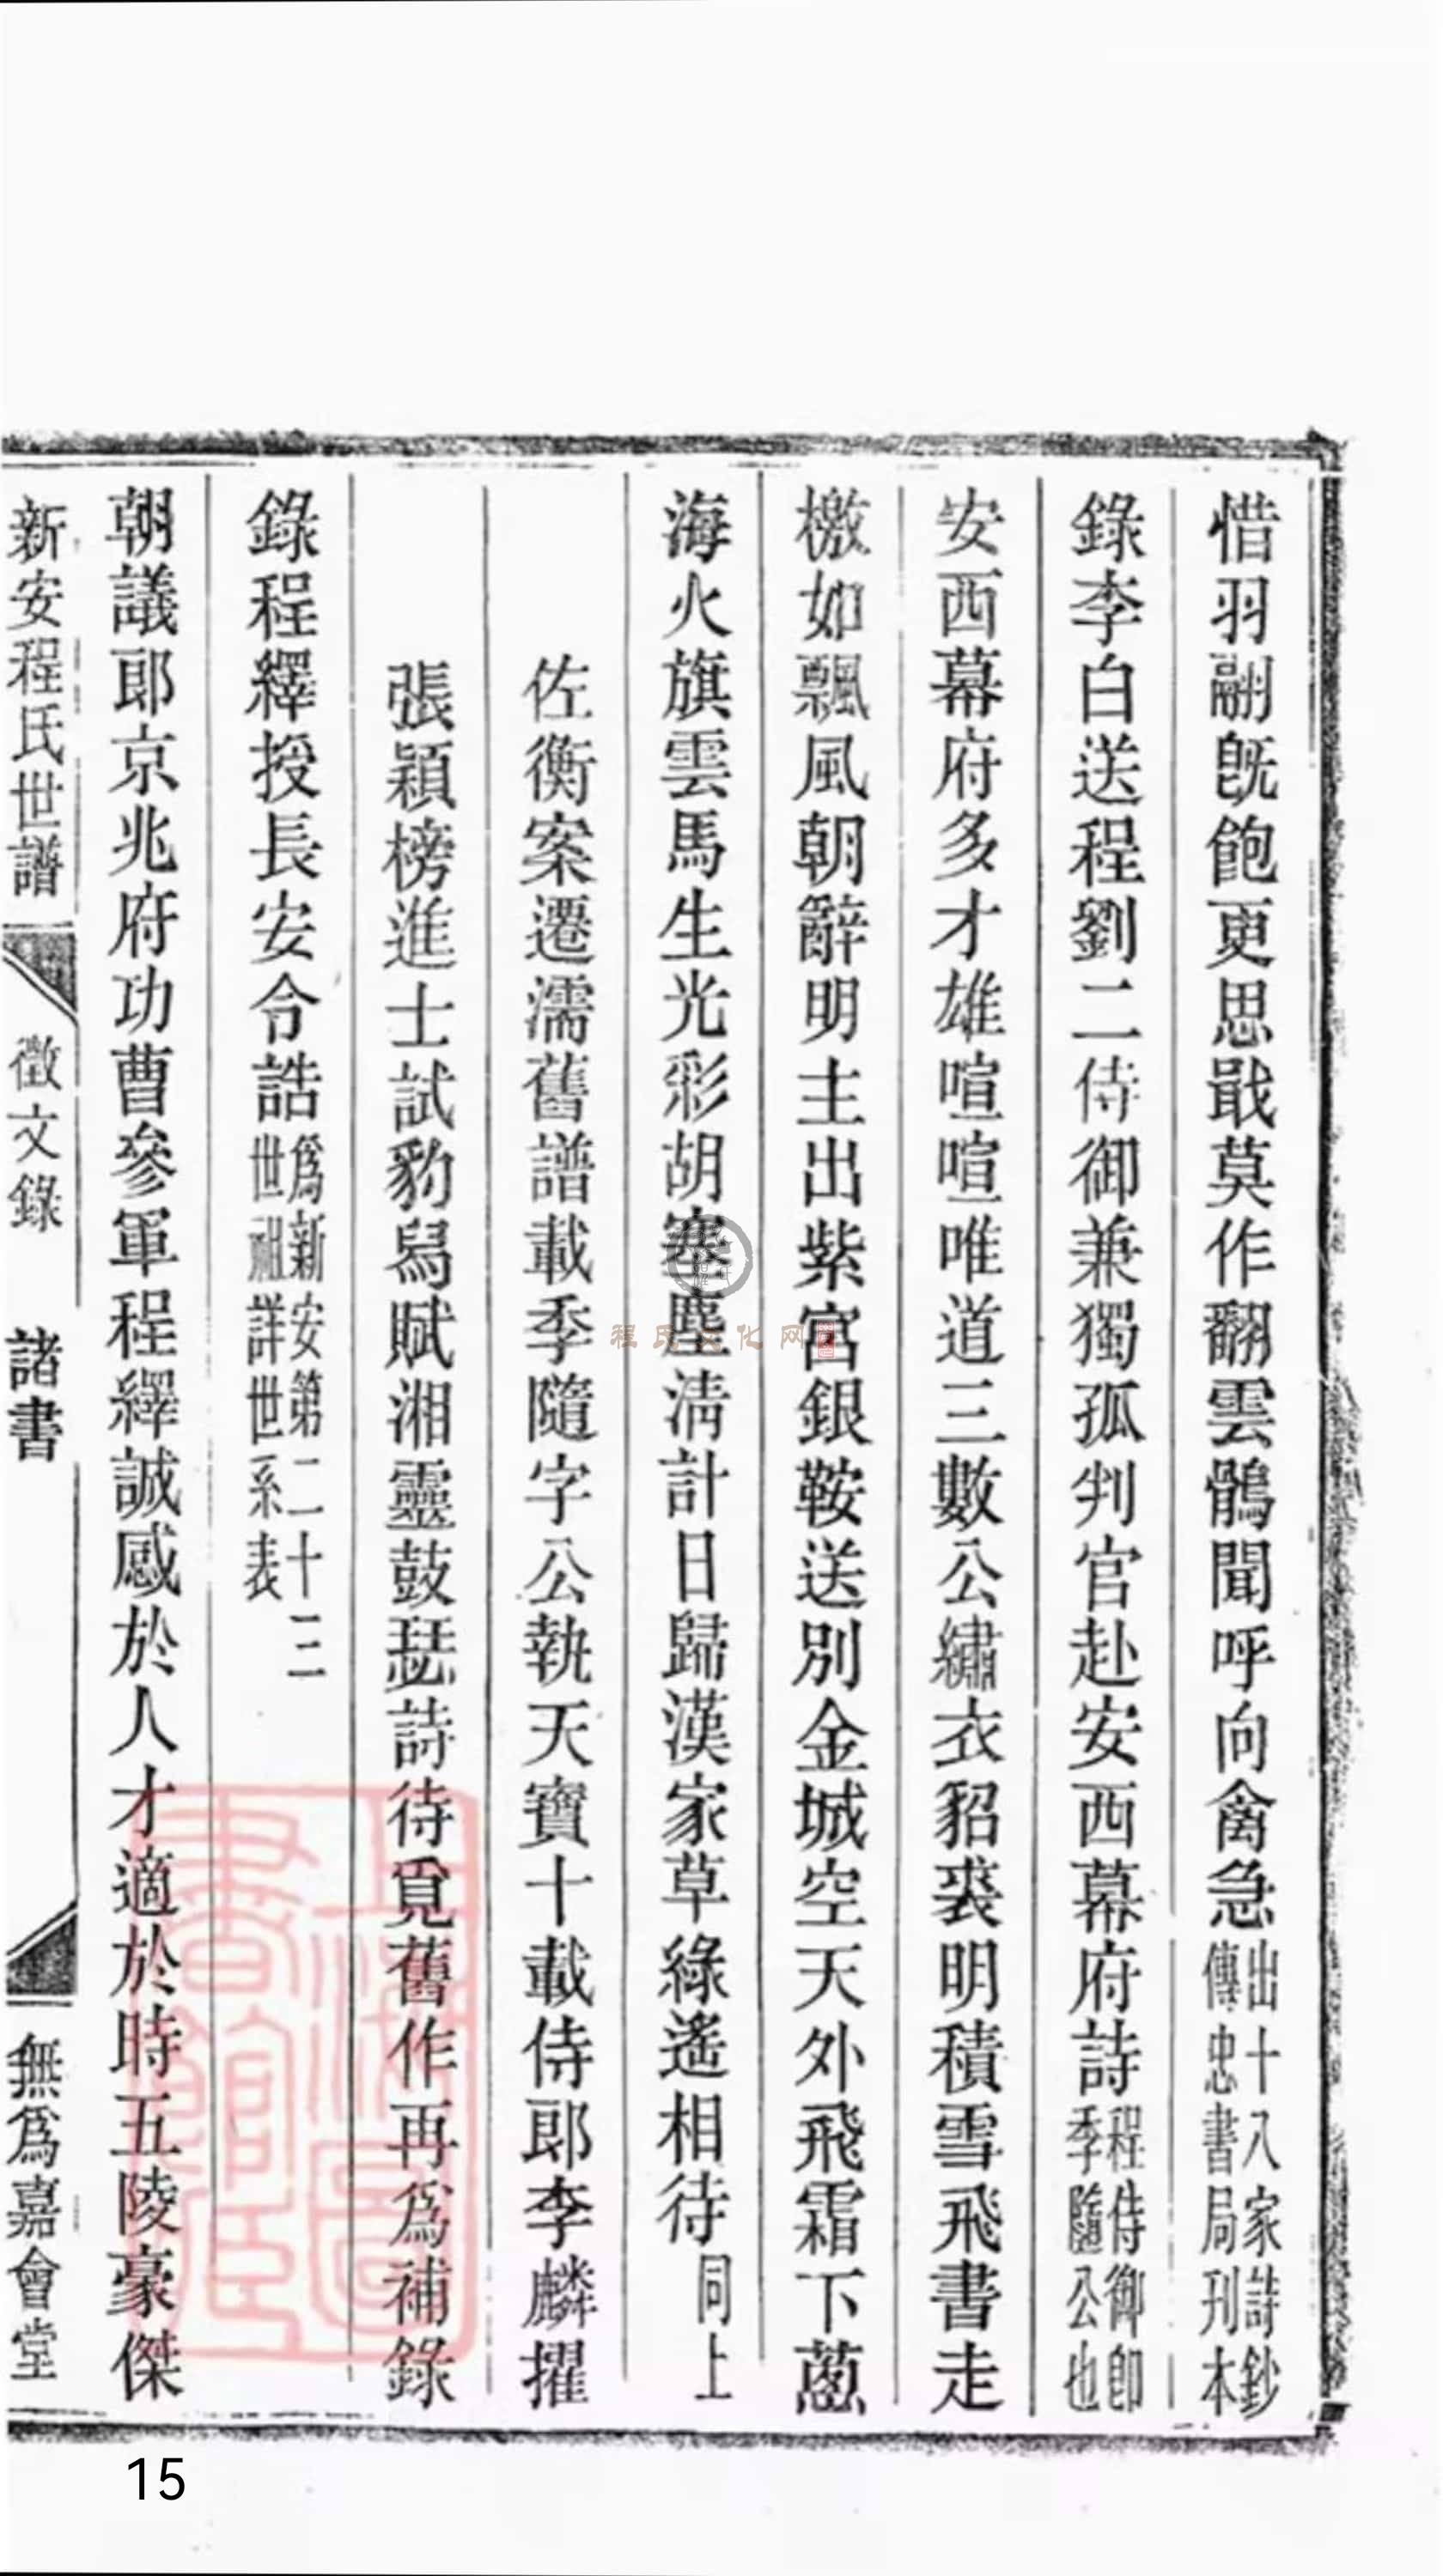 惜羽翮旣飽更思戢莫作翻雲鶻聞呼向禽急出十八家詩鈔傳忠書局刊本
錄李白送程劉二侍御兼獨孤判官赴安西幕府詩程侍御卽季隨公也
安西幕府多才雄喧喧唯道三數公繡衣貂裘明積雪飛書走
檄如飄風朝辭明主出紫宮銀鞍送別金城空天外飛霜下蔥
海火旗雲馬生光彩胡塞塵淸計日歸漢家草綠遙相待同上
佐衡案遷濡舊譜載季隨字公執天寶十載侍郞李麟擢
張穎榜進士試豹舄賦湘靈鼓瑟詩待覓舊作再爲補錄
錄程繹授長安令誥爲新安第二十三世祖詳世系表
朝議郞京兆府功曹參軍程繹誠感於人才適於時五陵豪傑
新安程氏世譜 徵文錄 諸書 無爲嘉會堂
程氏文化网
15